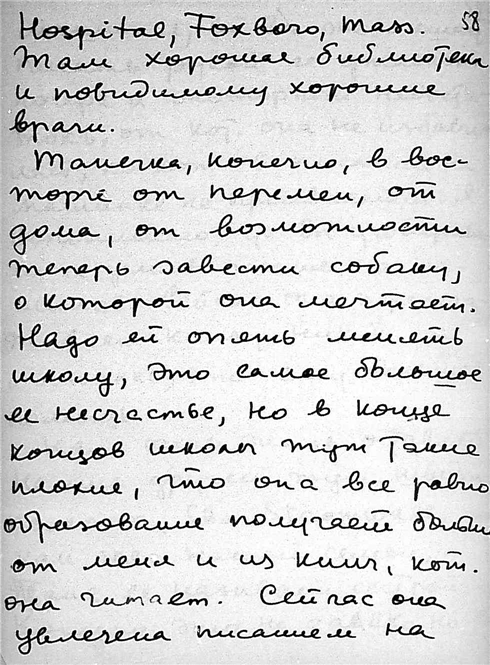 58
Hospital, Foxboro, Mass.
Там хорошая библиотека
и повидимому хорошие
врачи.
Танечка, конечно, в вос-
торге от перемен, от
дома, от возможности
теперь завести собаку,
о которой она мечтает.
Надо ей опять менять
школу, это самое большое
ее несчастье, но в конце
концов школы тут такие
плохие, что она все равно
образование получает больше
от меня и из книг, кот.
она читает. Сейчас она
увлечена писанием на